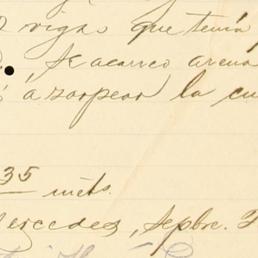 vigas que tenía
Se acarreo arena
á zorpear la cu
35 mêts.
Mercedes, Sepbre.